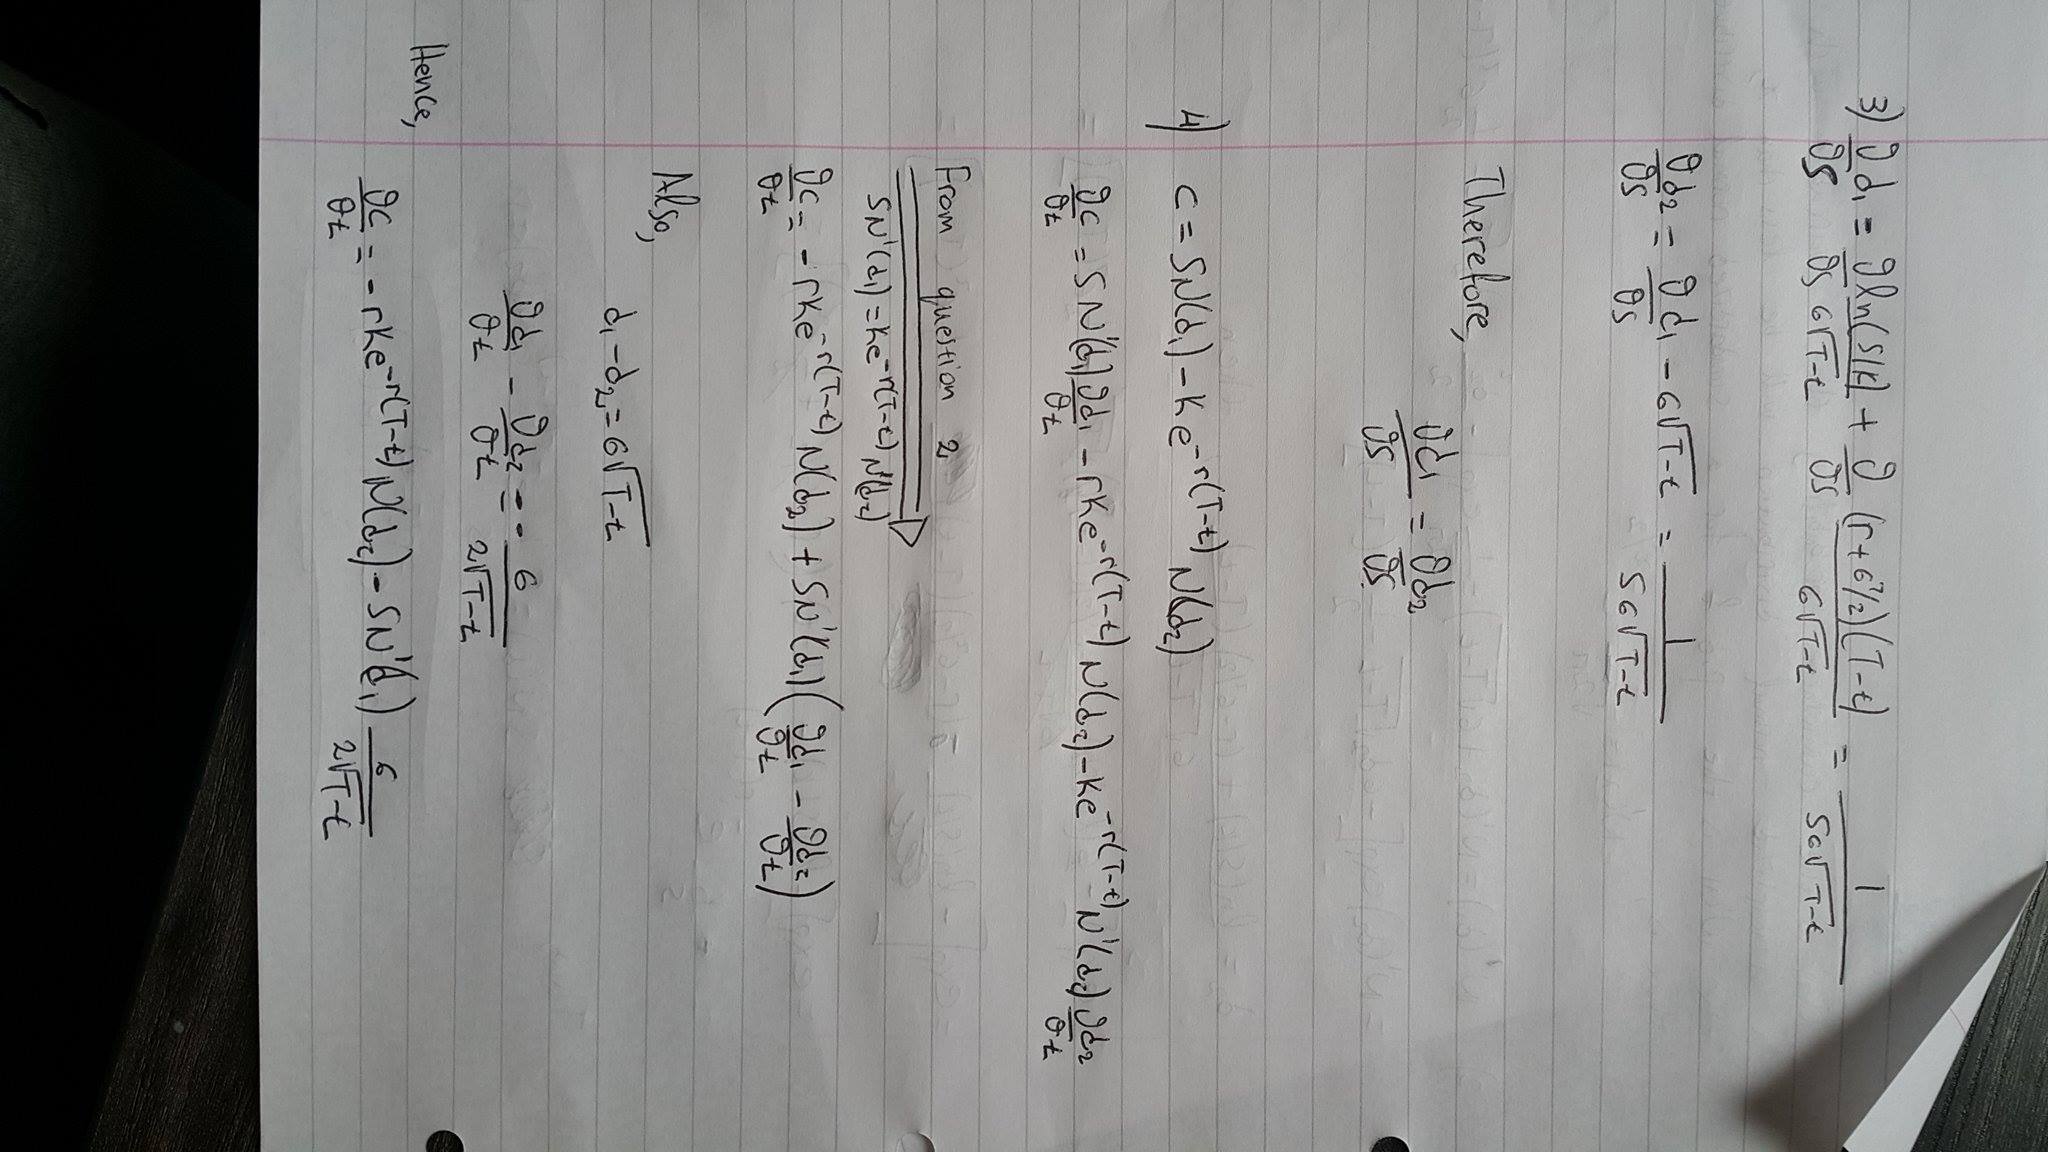 3) ∂d₁/∂S = ∂/∂S ln(S/K)/(σ√(T-t)) + ∂/∂S (r+σ²/2)(T-t)/(σ√(T-t)) = 1/(Sσ√(T-t))
∂d₂/∂S = ∂d₁/∂S - σ√(T-t) = 1/(Sσ√(T-t))
Therefore,
∂d₁/∂S = ∂d₂/∂S
4) c = SN(d₁) - Ke^(-r(T-t)) N(d₂)
∂c/∂t = SN'(d₁) ∂d₁/∂t - rKe^(-r(T-t)) N(d₂) - Ke^(-r(T-t)) N'(d₂) ∂d₂/∂t
From question 2
SN'(d₁) = Ke^(-r(T-t)) N'(d₂)
∂c/∂t = -rKe^(-r(T-t)) N(d₂) + SN'(d₁) (∂d₁/∂t - ∂d₂/∂t)
Also,
d₁ - d₂ = σ√(T-t)
∂d₁/∂t - ∂d₂/∂t = - σ/(2√(T-t))
Hence,
∂c/∂t = -rKe^(-r(T-t)) N(d₂) - SN'(d₁) σ/(2√(T-t))